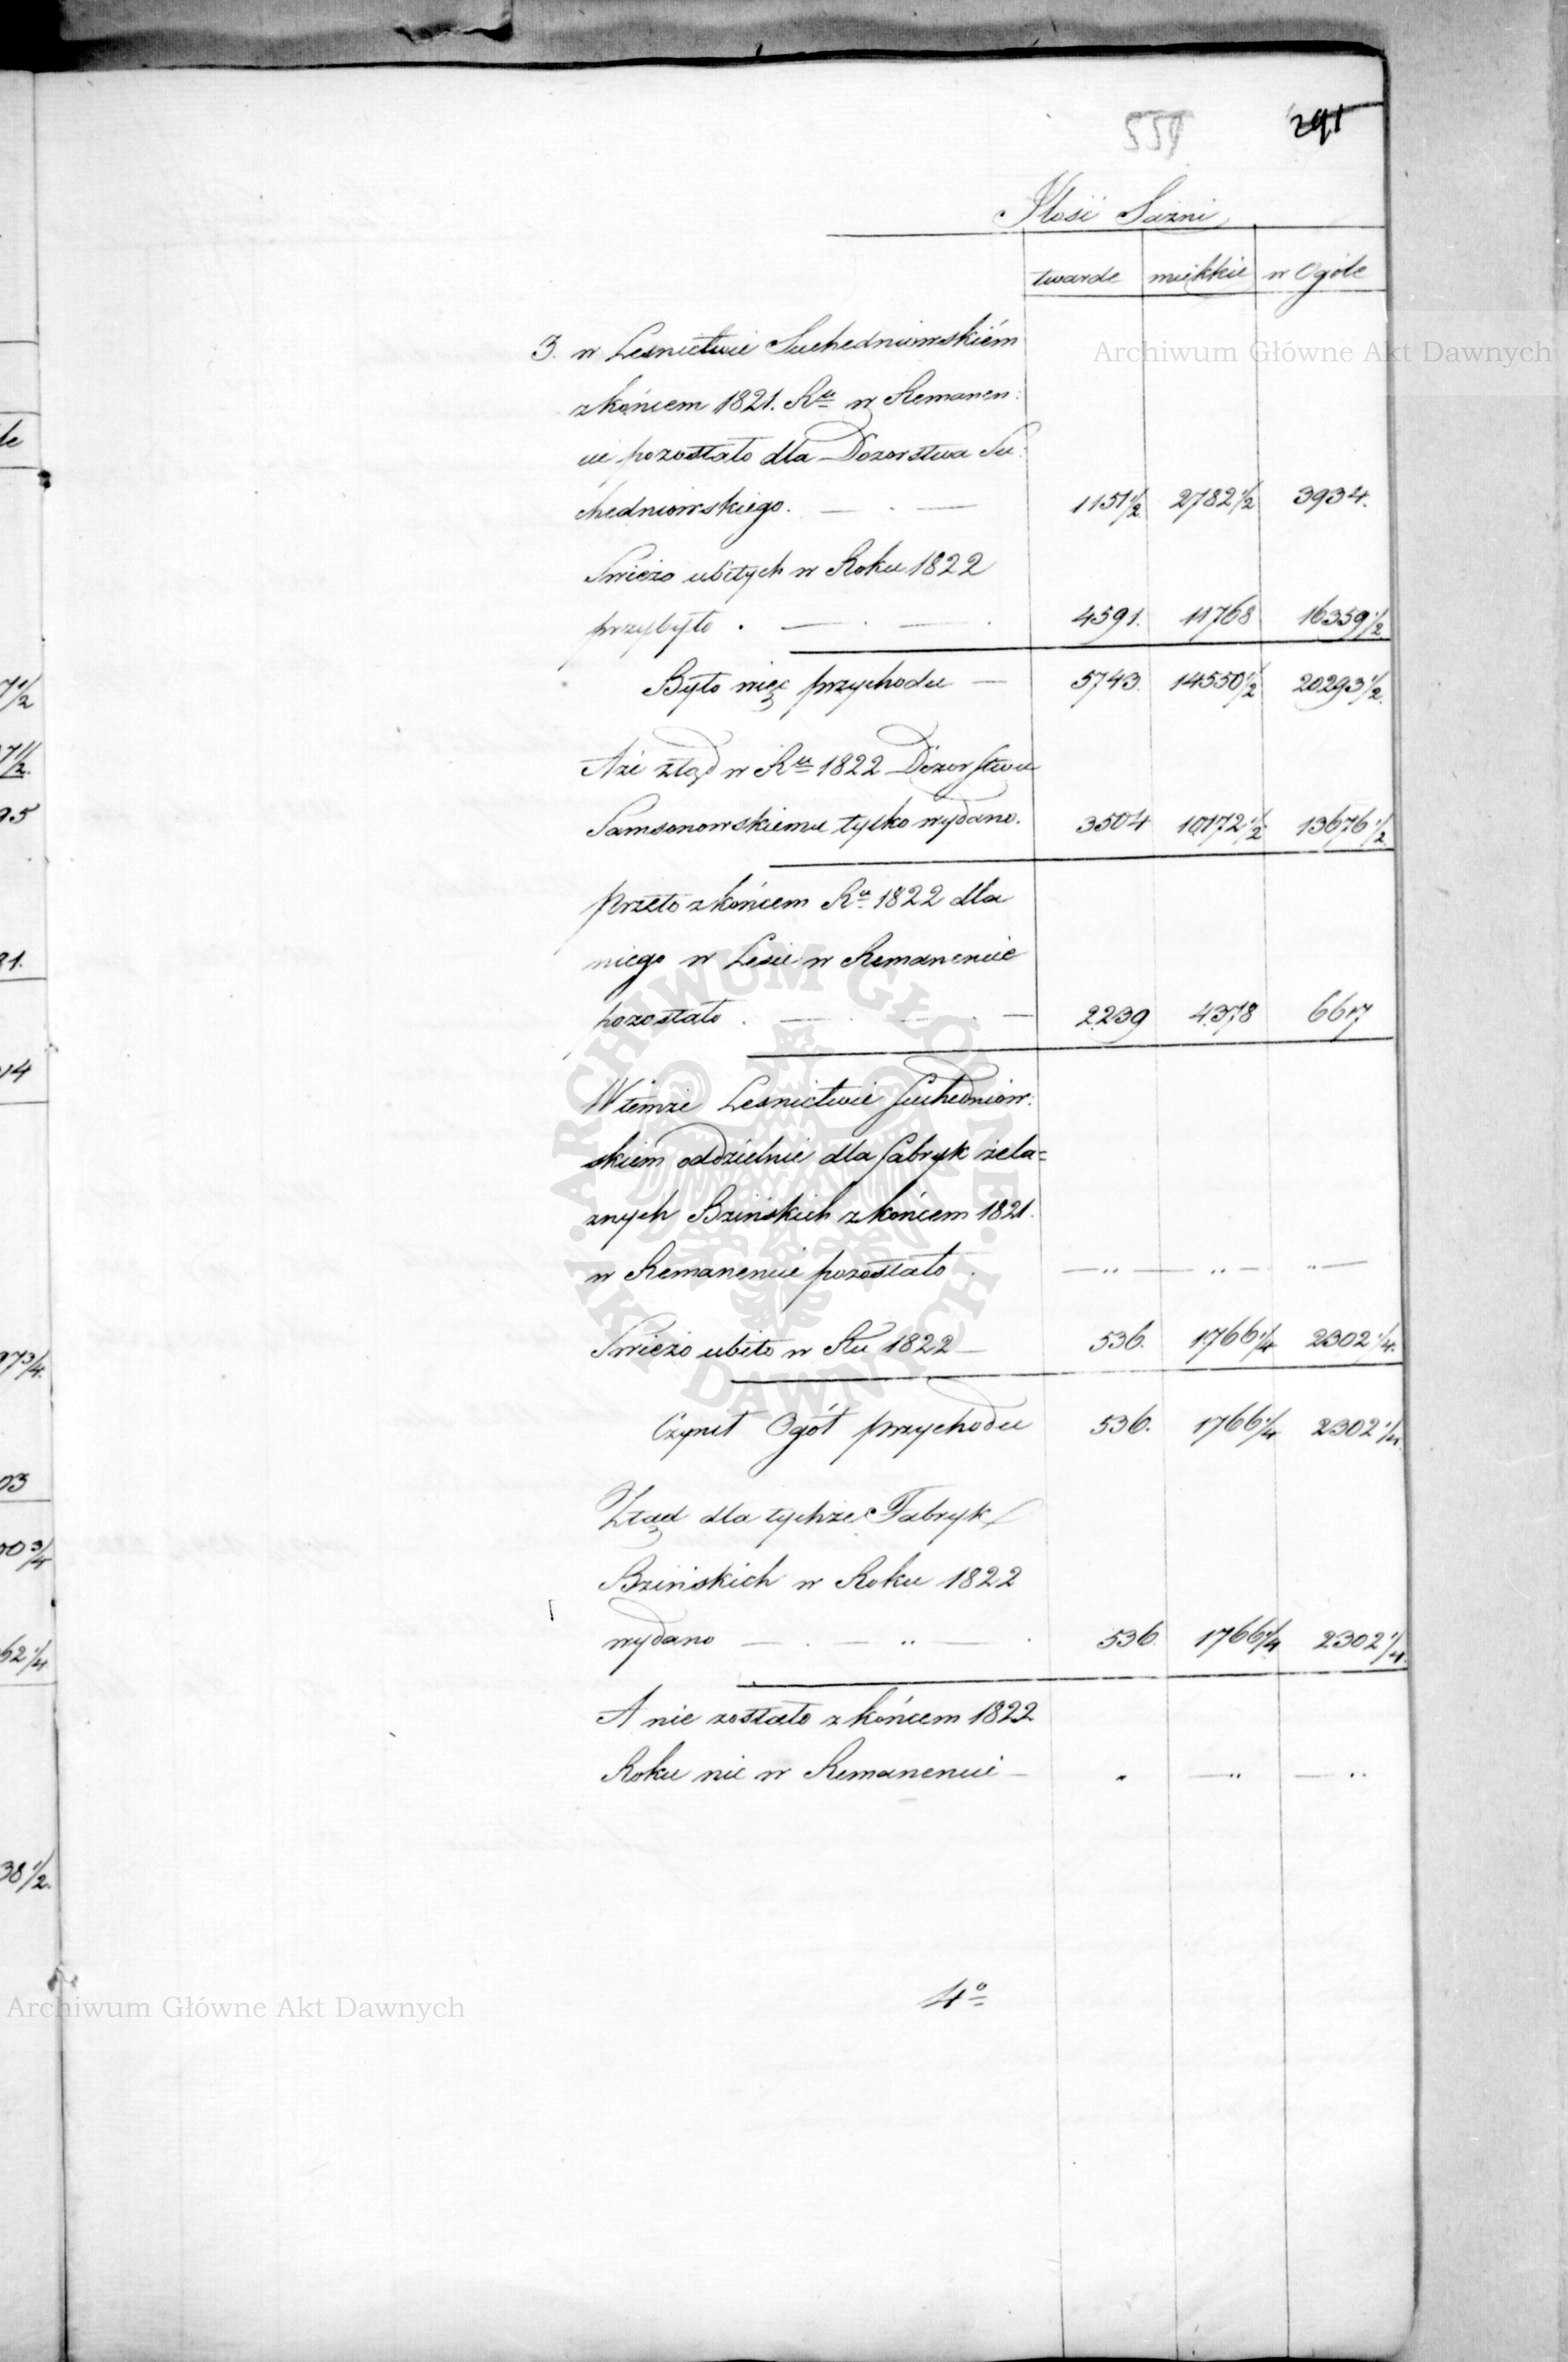 559 291
Ilość Sążni
twarde miękkie w Ogóle
3. w Lesnictwie Suchedniowskiém
z końcem 1821. Ru w Remanen:
cie pozostało dla Dozorstwa Su:
chedniowskiego. 1151 1/2 2782 1/2 3934.
Swieżo ubitych w Roku 1822
przybyło . 4591. 11768 16359 1/2
Było więc przychodu — 5743. 14550 1/2 20293 1/2
Aże ztąd w Ru 1822 Dozorstwu
Samsonowskiemu tylko wydano. 3504 10172 1/2 13676 1/2
przeto z końcem Ru 1822 dla
niego w Lesie w Remanencie
pozostało . — 2239 4378 6617
W temże Lesnictwie Suchedniow:
skiem oddzielnie dla fabryk żela=
znych Bzińskich z końcem 1821.
w Remanencie pozostało . — „ — „ — „ —
Swieżo ubito w Ru 1822 — 536. 1766 1/4 2302 1/4.
Czynit Ogół przychodu 536. 1766 1/4 2302 1/4
Ztąd dla tychże Fabryk
Bzińskich w Roku 1822
wydano — . — „ — . 536. 1766 1/4 2302 1/4.
A nie zostało z końcem 1822
Roku nic w Remanencie — „ — „ — „
4o
Archiwum Główne Akt Dawnych
Archiwum Główne Akt Dawnych
ARCHIWUM GŁÓWNE AKT DAWNYCH